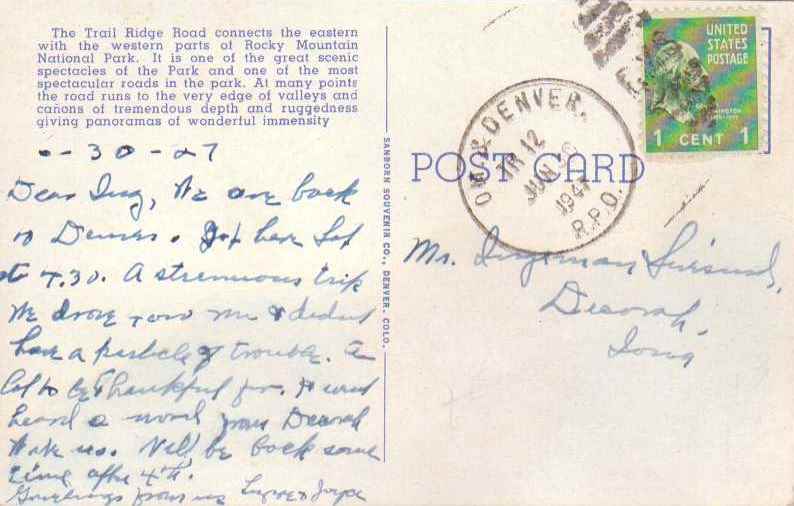 The Trail Ridge Road connects the eastern
with the western parts of Rocky Mountain
National Park. It is one of the great scenic
spectacles of the Park and one of the most
spectacular roads in the park. At many points
the road runs to the very edge of valleys and
cañons of tremendous depth and ruggedness
giving panoramas of wonderful immensity
30 - 27
Dear Ing, We are back
to Denver. Got here Sat
at 4.30. A strenuous trip
We drove over 700 & didnt
have a particle of trouble. A
lot to be thankful for.
heard a word from Decorah
Will be back some
time after 4th.
Greetings from us
SANBORN SOUVENIR CO., DENVER, COLO.
POST CARD
OM. & DENVER.
TR 12
JUN 
194
R.P.O.
UNITED
STATES
POSTAGE
1 CENT 1
Mr. Ingeman
Decorah,
Iowa